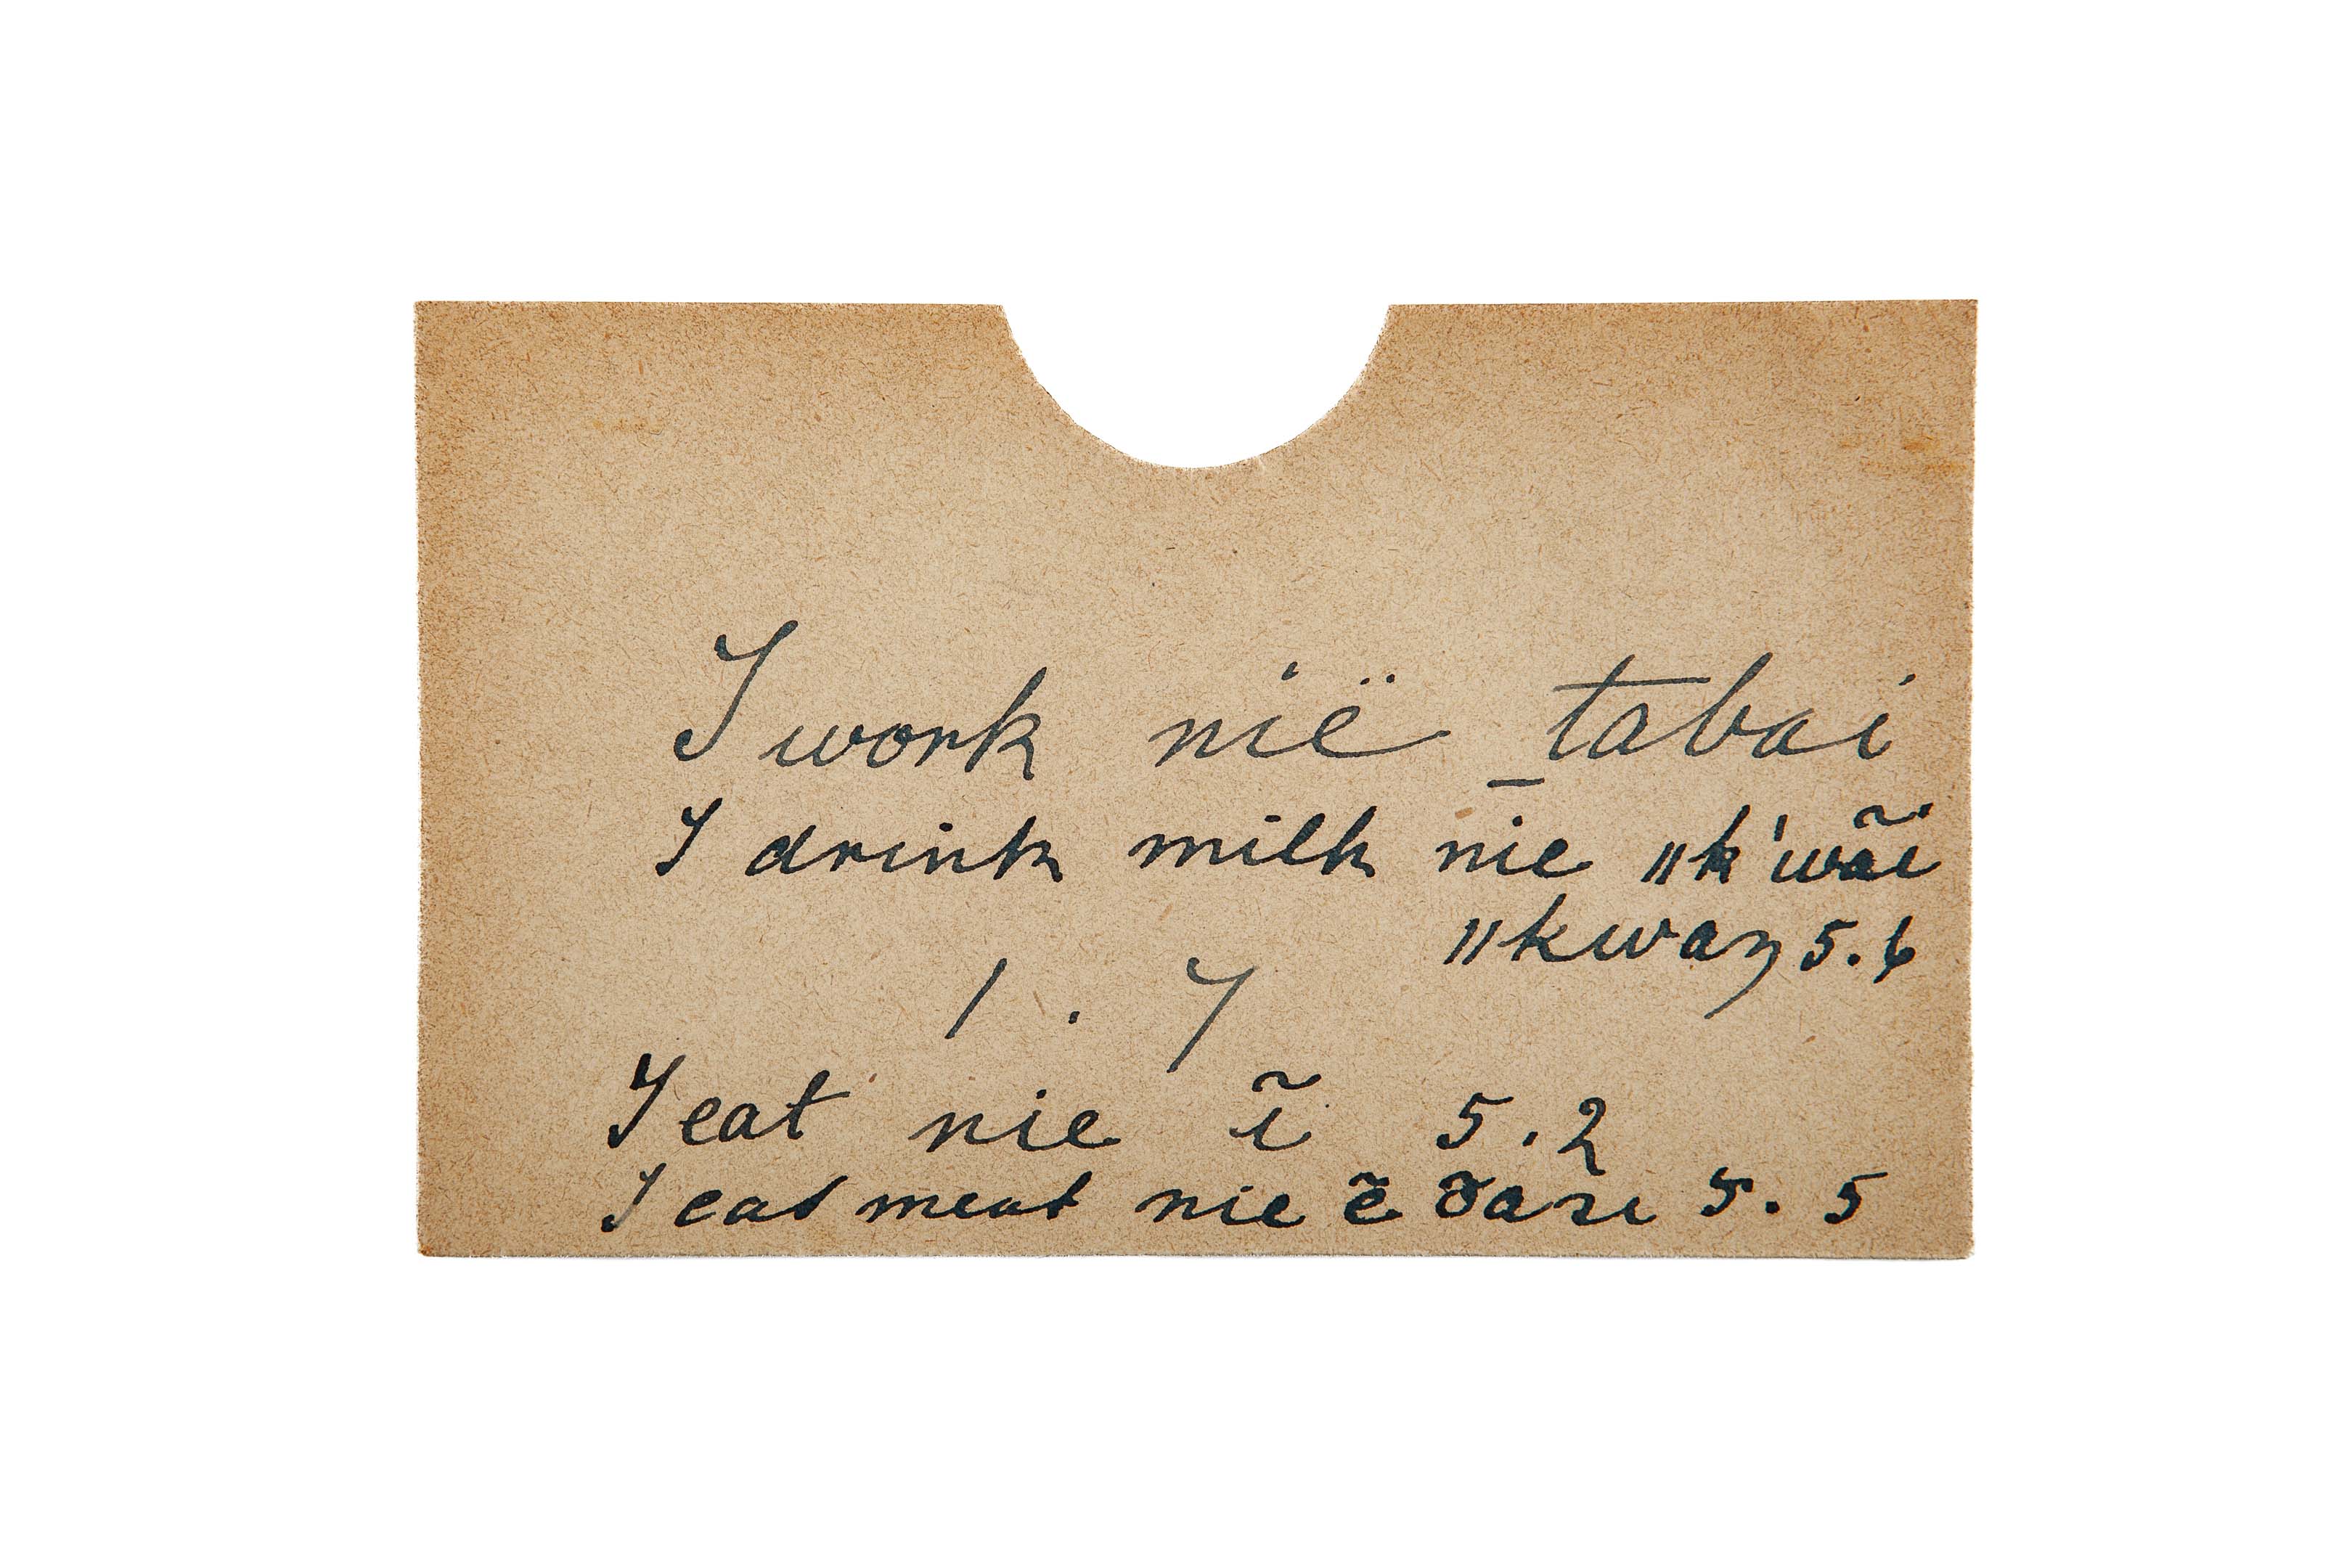 I work nië tabai
I drink milk nie ǁk'wãi
ǁkwaʒ 5.6
1.7
I eat nie ĩ 5.2
I eat meat nie ẽ 5.5